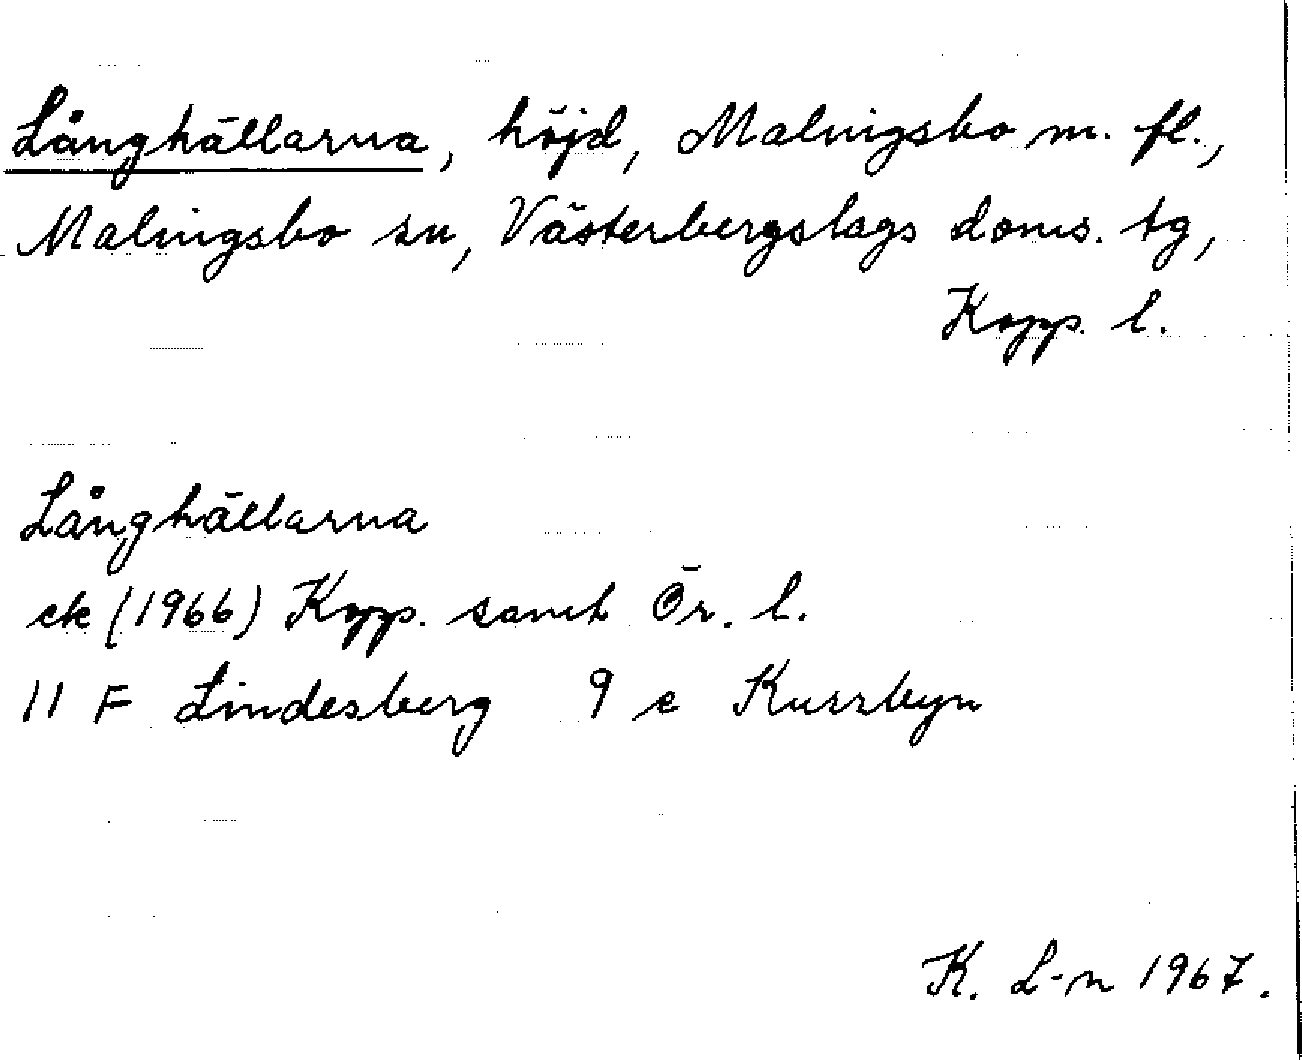 Långhällarna, höjd, Malingsbo m. fl.,
Malingsbo sn, Västerbergslags doms. tg,
Kopp. l.
Långhällarna
ek (1966) Kopp. samt Ör. l.
11 F Lindesberg 9 e Kurrbyn
K. L-n 1967.